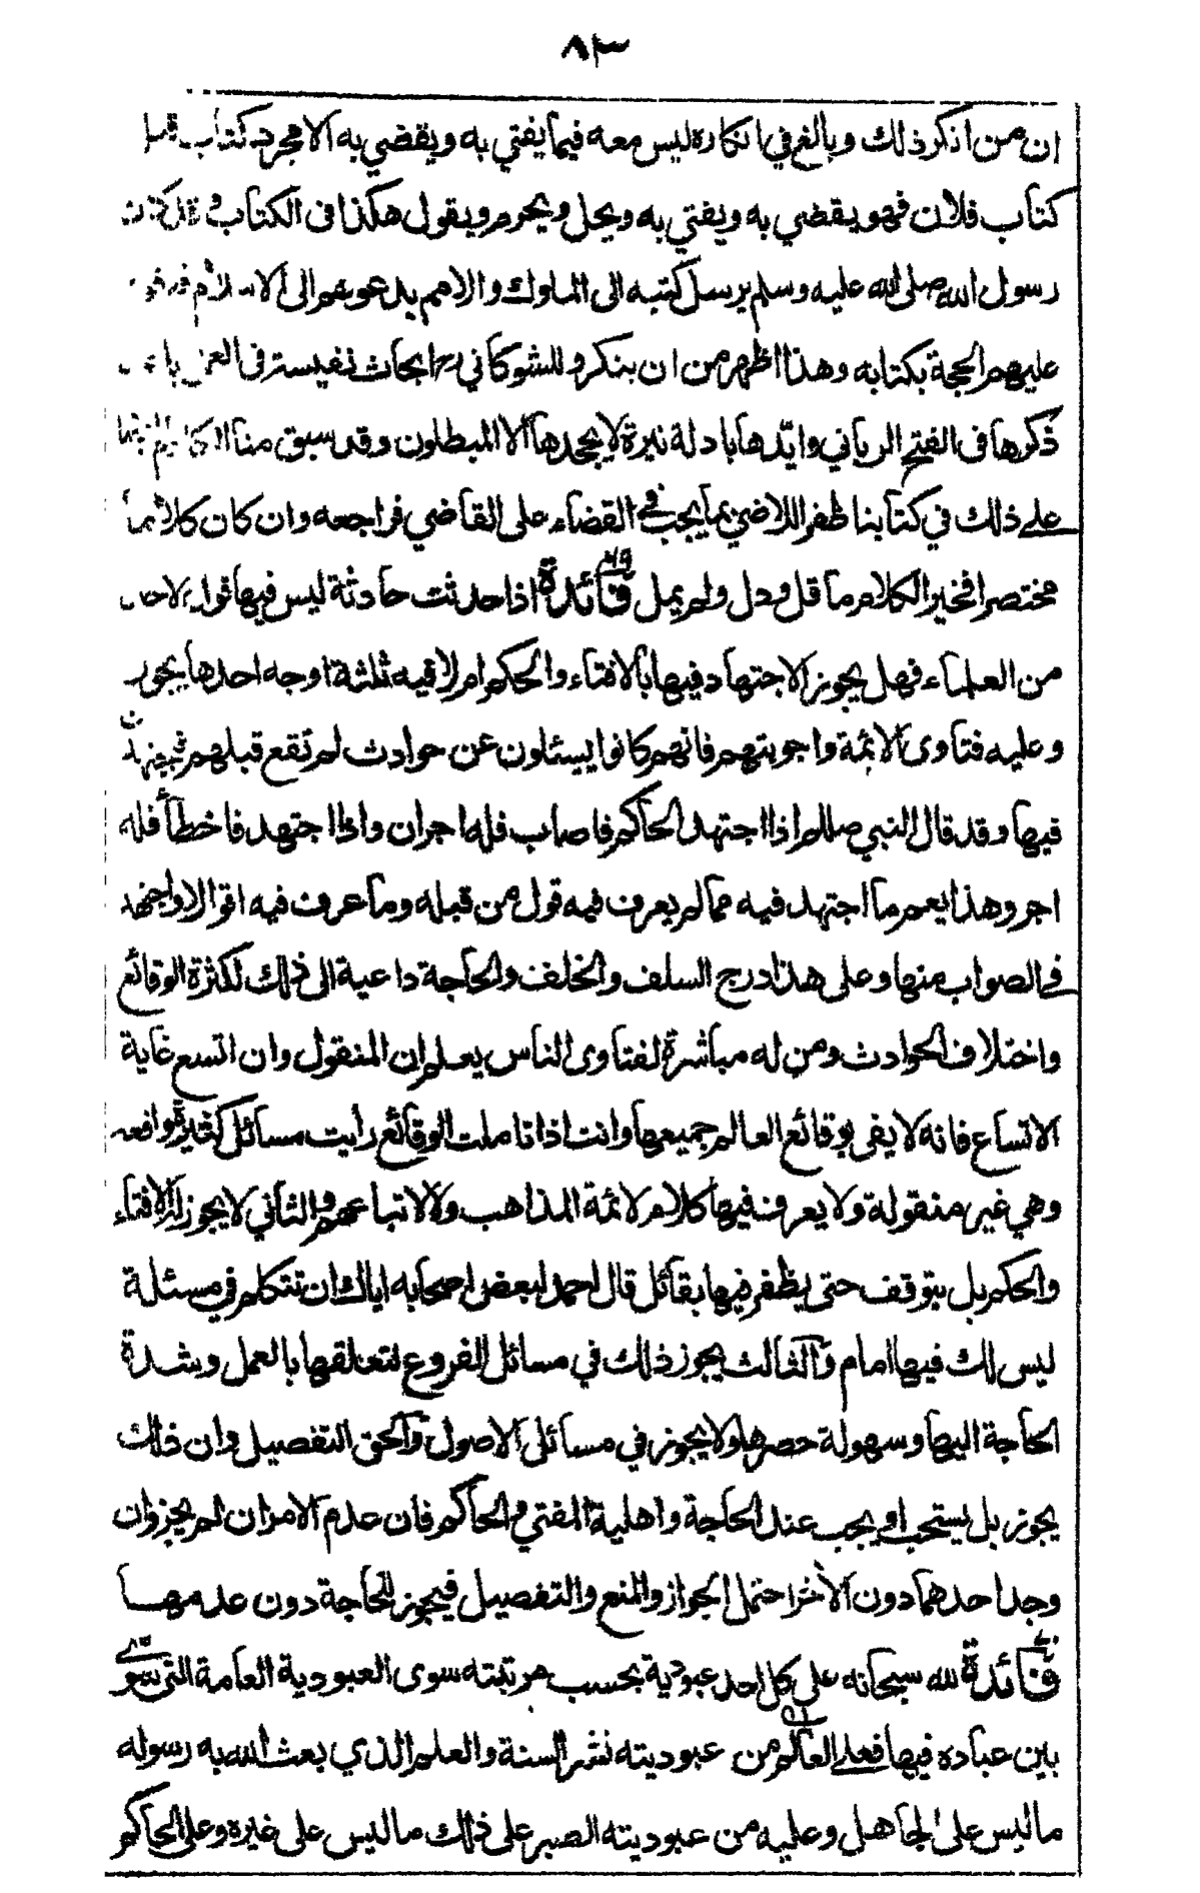 ٨٣
ان من انكر ذلك وبالغ في انكاره ليس معه فيما يفتي به ويقضي به الا مجرد كتاب قيل
كتاب فلان فهو يقضي به ويفتي به ويحل ويحرم ويقول هكذا في الكتاب و
رسول الله صلى الله عليه وسلم يرسل كتبه الى الملوك والامم يدعوهم الى الاسلام فتقوم
عليهم الحجة بكتابه وهذا اظهر من ان ينكر وللشوكاني رح ابحاث نفيسة في العمل
ذكرها في الفتح الرباني وايّدها بادلة نيرة لا يجحدها الا المبطلون وقد سبق منا الكلام
على ذلك في كتابنا ظفر اللاضي بما يجب في القضاء على القاضي فراجعه وان كان كلاما
مختصرا فخير الكلام ما قل ودل ولم يمل فائدة اذا حدثت حادثة ليس فيها قول لاحد
من العلماء فهل يجوز الاجتهاد فيها بالافتاء والحكم ام لا فيه ثلثة اوجه احدها يجوز
وعليه فتاوى الائمة واجوبتهم فانهم كانوا يسئلون عن حوادث لم تقع قبلهم فيجتهدون
فيها وقد قال النبي صللم اذا اجتهد الحاكم فاصاب فله اجران واذا اجتهد فاخطأ فله
اجر وهذا يعم ما اجتهد فيه مما لم يعرف فيه قول من قبله وما عرف فيه اقوالا واجتهد
في الصواب منها وعلى هذا درج السلف والخلف والحاجة داعية الى ذلك لكثرة الوقائع
واختلاف الحوادث ومن له مباشرة لفتاوى الناس يعلم ان المنقول وان اتسع غاية
الاتساع فانه لا يفى بوقائع العالم جميعها وانت اذا تاملت الوقائع رأيت مسائل كثيرة واقعه
وهي غير منقولة ولا يعرف فيها كلام لائمة المذاهب ولا لاتباعهم والثاني لا يجوز له الافتاء
والحكم بل يتوقف حتى يظفر فيها بقائل قال احمد لبعض اصحابه اياك ان تتكلم في مسئلة
ليس لك فيها امام والثالث يجوز ذلك في مسائل الفروع لتعلقها بالعمل وشدة
الحاجة اليها وسهولة حصرها ولا يجوز في مسائل الاصول والحق التفصيل وان ذلك
يجوز بل يستحب او يجب عند الحاجة واهلية المفتي والحاكم فان عدم الامران لم يجز وان
وجد احدهما دون الأخر احتمل الجواز والمنع والتفصيل فيجوز للحاجة دون عدمها
فائدة لله سبحانه على كل احد عبودية بحسب مرتبته سوى العبودية العامة التي سوى
بين عباده فيها فعلى العالم من عبوديته نشر السنة والعلم الذي بعث الله به رسوله
ما ليس على الجاهل وعليه من عبوديته الصبر على ذلك ما ليس على غيره وعلى الحاكم